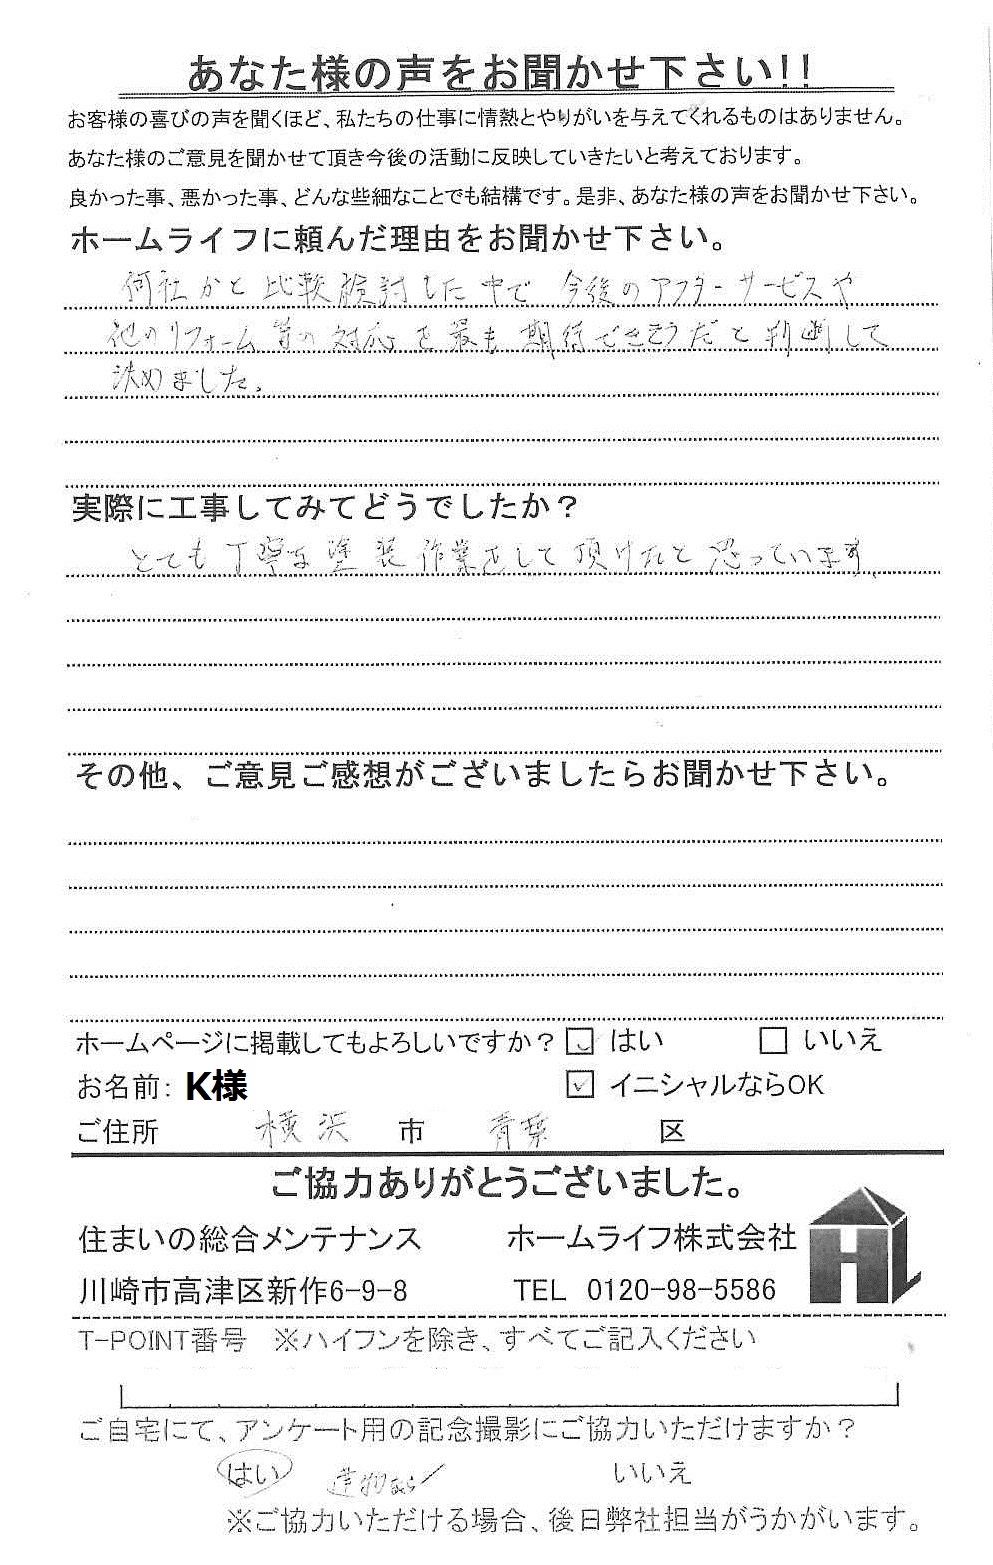 あなた様の声をお聞かせ下さい!!
お客様の喜びの声を聞くほど、私たちの仕事に情熱とやりがいを与えてくれるものはありません。
あなた様のご意見を聞かせて頂き今後の活動に反映していきたいと考えております。
良かった事、悪かった事、どんな些細なことでも結構です。是非、あなた様の声をお聞かせ下さい。
ホームライフに頼んだ理由をお聞かせ下さい。
何社かと比較検討した中で今後のアフターサービスや
他のリフォーム等の対応を最も期待できそうだと判断して
決めました。
実際に工事してみてどうでしたか？
とても丁寧な塗装作業をして頂けたと思っています。
その他、ご意見ご感想がございましたらお聞かせ下さい。
ホームページに掲載してもよろしいですか？ はい いいえ
お名前: K様 イニシャルならOK
ご住所 横浜 市 青葉 区
ご協力ありがとうございました。
住まいの総合メンテナンス ホームライフ株式会社
川崎市高津区新作6-9-8 TEL 0120-98-5586
T-POINT番号 ※ハイフンを除き、すべてご記入ください
ご自宅にて、アンケート用の記念撮影にご協力いただけますか？
はい 建物なら いいえ
※ご協力いただける場合、後日弊社担当がうかがいます。